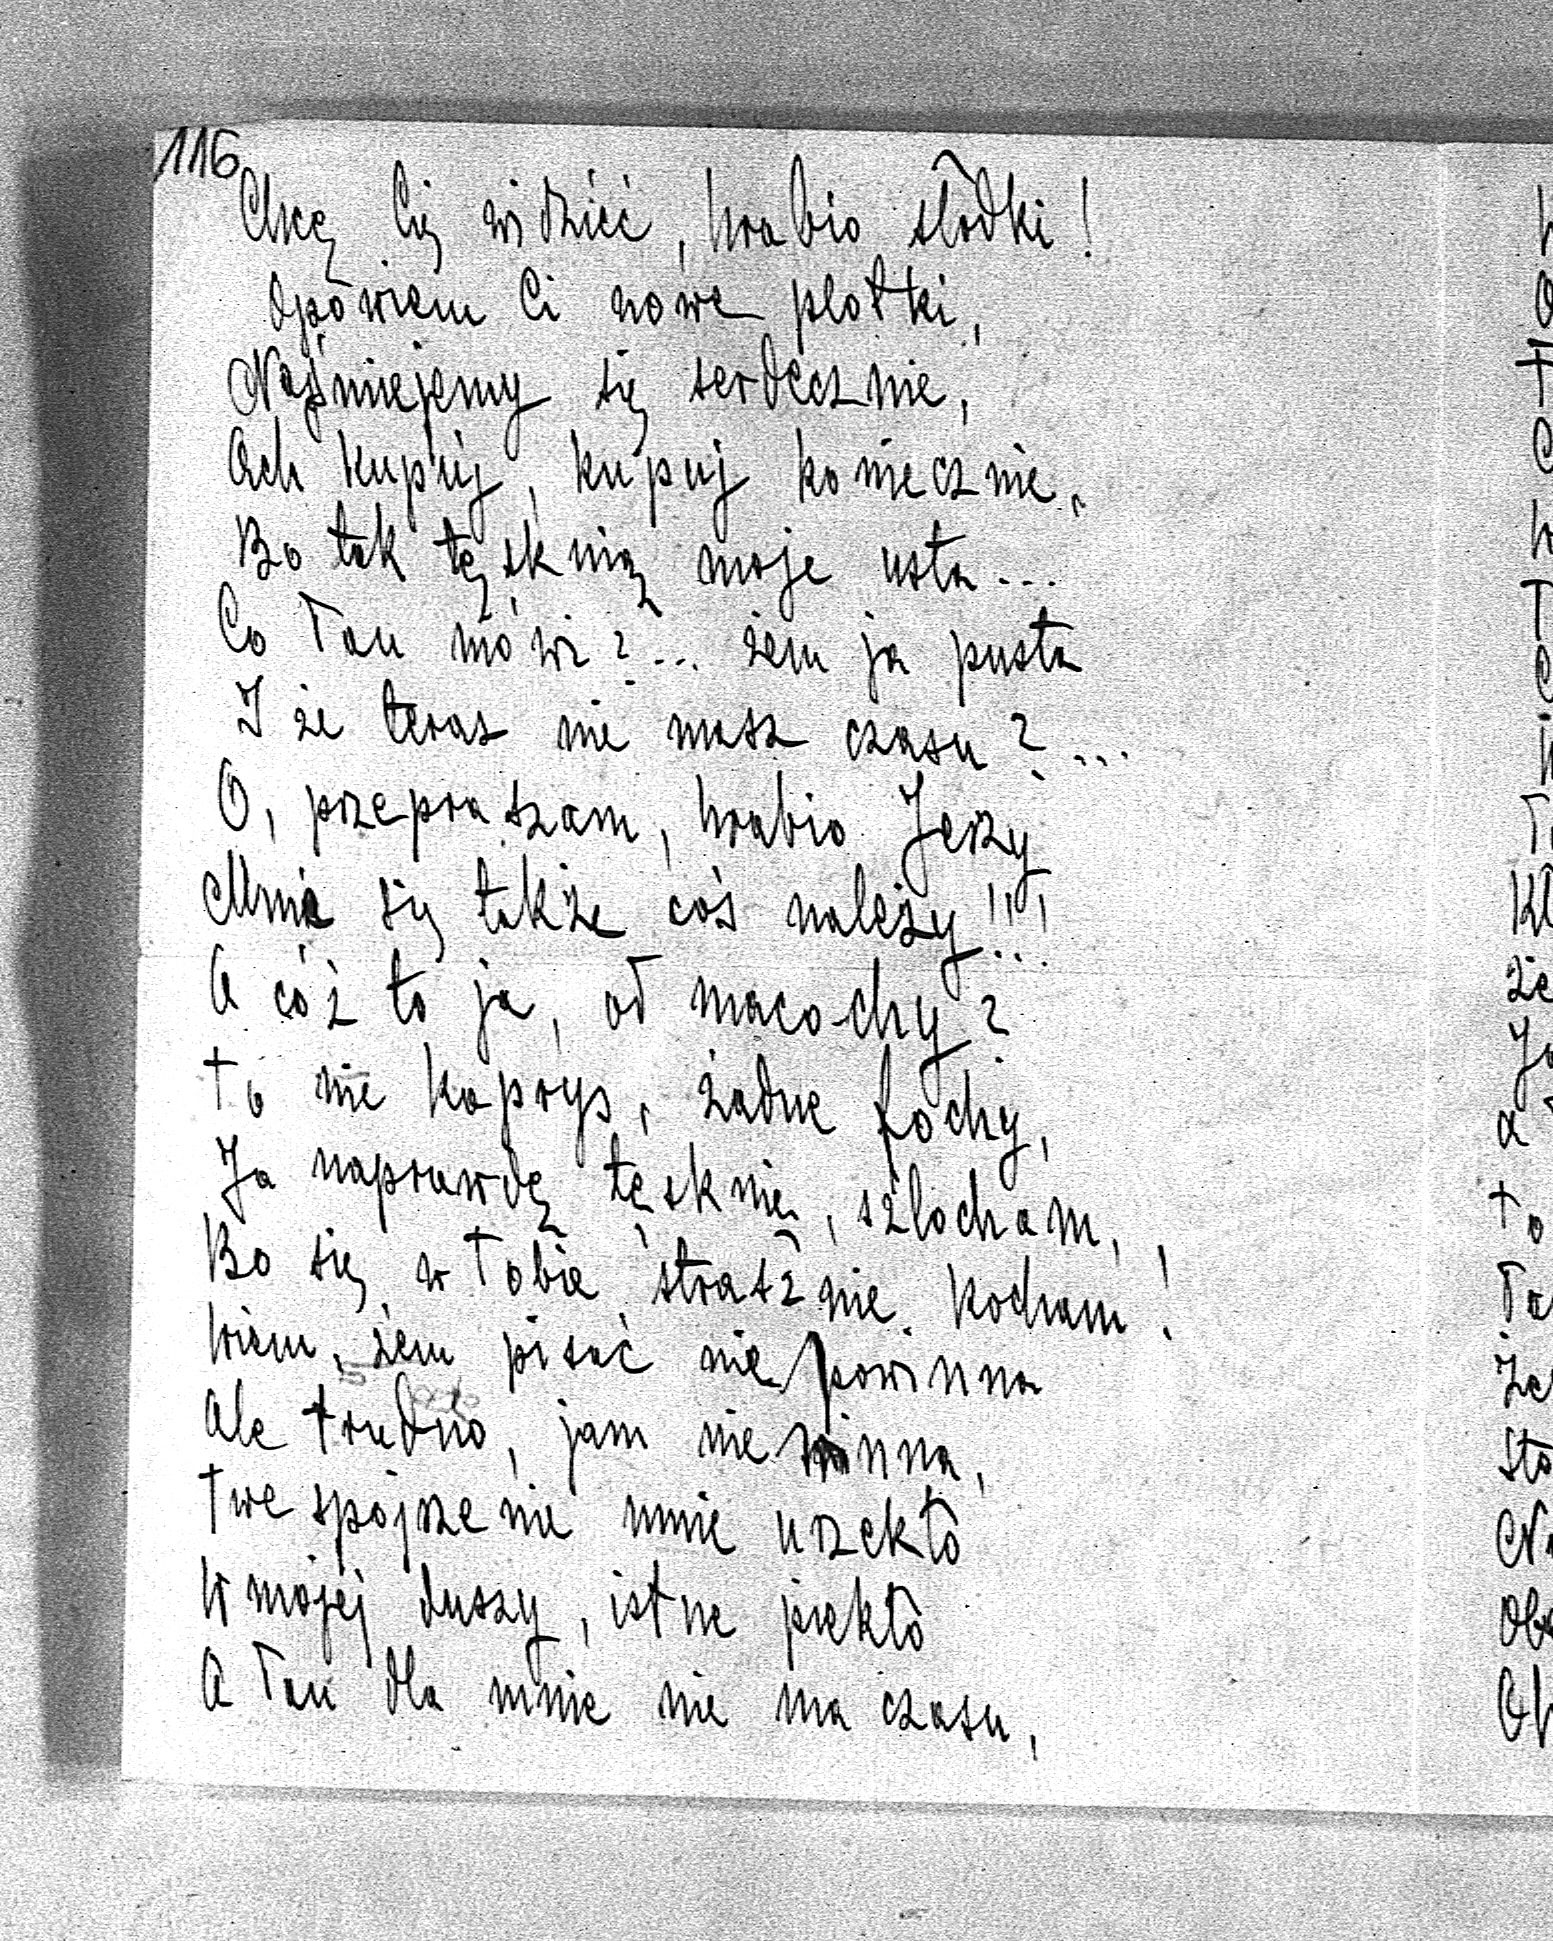 116
Chcę Cię widzieć, hrabio słodki!
Opowiem Ci nowe plotki,
Naśmiejemy się serdecznie,
Ach kupuj, kupuj koniecznie,
Bo tak tęsknią moje usta...
Co Pan mówi?... żem ja pusta
I że teraz nie masz czasu?...
O, przepraszam, hrabio Jerzy
Mnie się także coś należy!!!
A cóż to ja, od macochy?
To nie kaprys, żadne fochy,
Ja naprawdę tęsknię, szlocham,
Bo się w Tobie strasznie kocham!
Wiem, żem pisać nie powinna
Ale trudno, jam nie winna,
Twe spojrzenie mnie urzekło
W mojej duszy, istne piekło
A Pan dla mnie nie ma czasu,